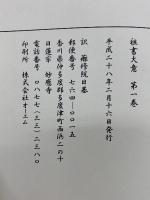 祖書大意 第一巻
平成二十八年二月十六日発行
訳 藤修院日基
郵便番号 七六四―〇〇一五
香川県仲多度郡多度津町西浜二の十
日蓮宗 妙應寺
電話番号 〇八七七(三三)二三八〇
印刷所 株式会社オーエム